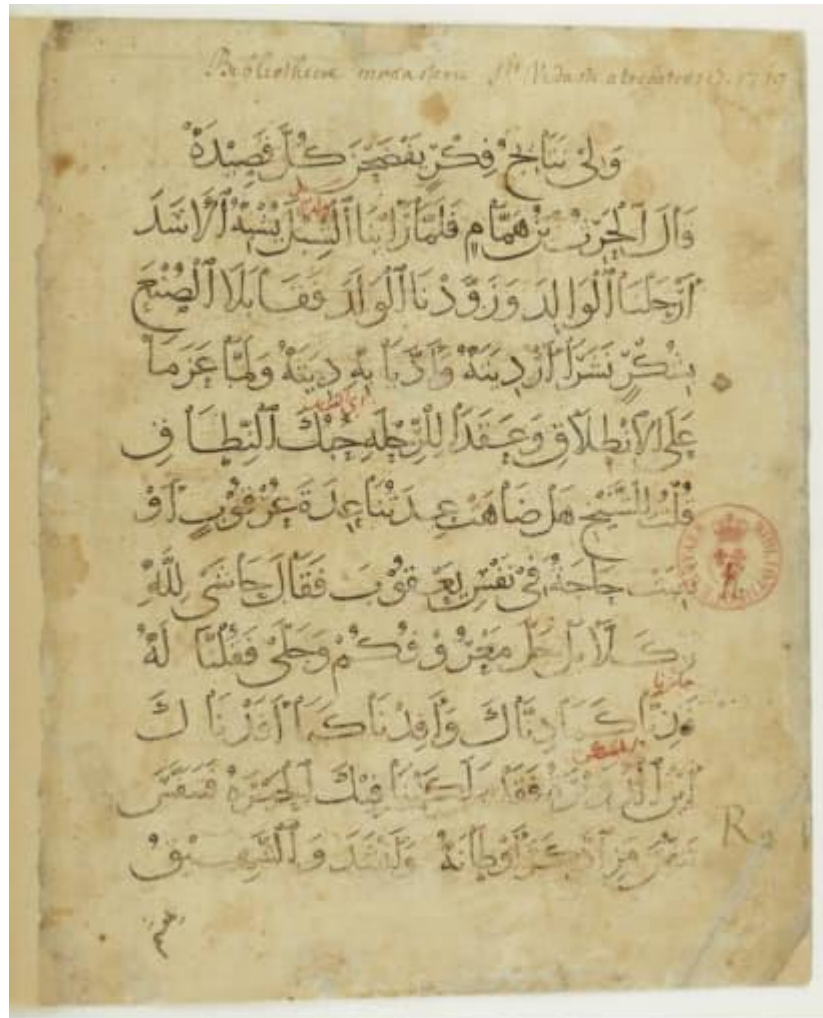 Bibliothecæ monasterii Sti Vedasti atrebatensis
وَلِيْ نَتَايِجُ فِكْرٍ يَفْضَحْنَ كُلَّ قَصِيْدَهْ
قَالَ ٱلْحٰرِثُ بْنُ هَمَّامٍ فَلَمَّا رَاَيْنَا ٱلشِّبْلَ يُشْبِهُ ٱلْاَسَدَ
اَرْحَلْنَا ٱلْوَالِدَ وَزَوَّدْنَا ٱلْوَلَدَ فَقَابَلَا ٱلصُّنْعَ
بِشُكْرٍ نَشَرَا اَرْدِيَتَهُ وَاَدَّيَا بِهِ دِيَتَهُ وَلَمَّا عَزَمَا
عَلَى الْاِنْطِلَاقِ وَعَقَدَا لِلرِّحْلَةِ حُبُكَ ٱلنِّطَاقِ
قُلْتُ لِلشَّيْخِ هَلْ ضَاهَتْ عِدَتُنَا عِدَةَ عُرْقُوْبٍ اَوْ
بَقِيَتْ حَاجَةٌ فِيْ نَفْسِ يَعْقُوْبَ فَقَالَ حَاشَى لِلّٰهِ
وَكَلَّا بَلْ جَلَّ مَعْرُوْفُكُمْ وَجَلَّىْ فَقُلْنَا لَهُ
فَدِنَّا كَمَا دِنَّاكَ وَاَفِدْنَا كَمَا اَفَدْنَاكَ
اَيْنَ ٱلدُّوَيْرَةُ فَقَدْ مَلَكَتْنَا فِيْكَ ٱلْحَيْرَةُ فَتَنَفَّسَ
تَنَفُّسَ مَنِ ٱدَّكَرَ اَوْطَانَهُ وَاَنْشَدَ وَٱلشَّهِيْقُ
يلعثم